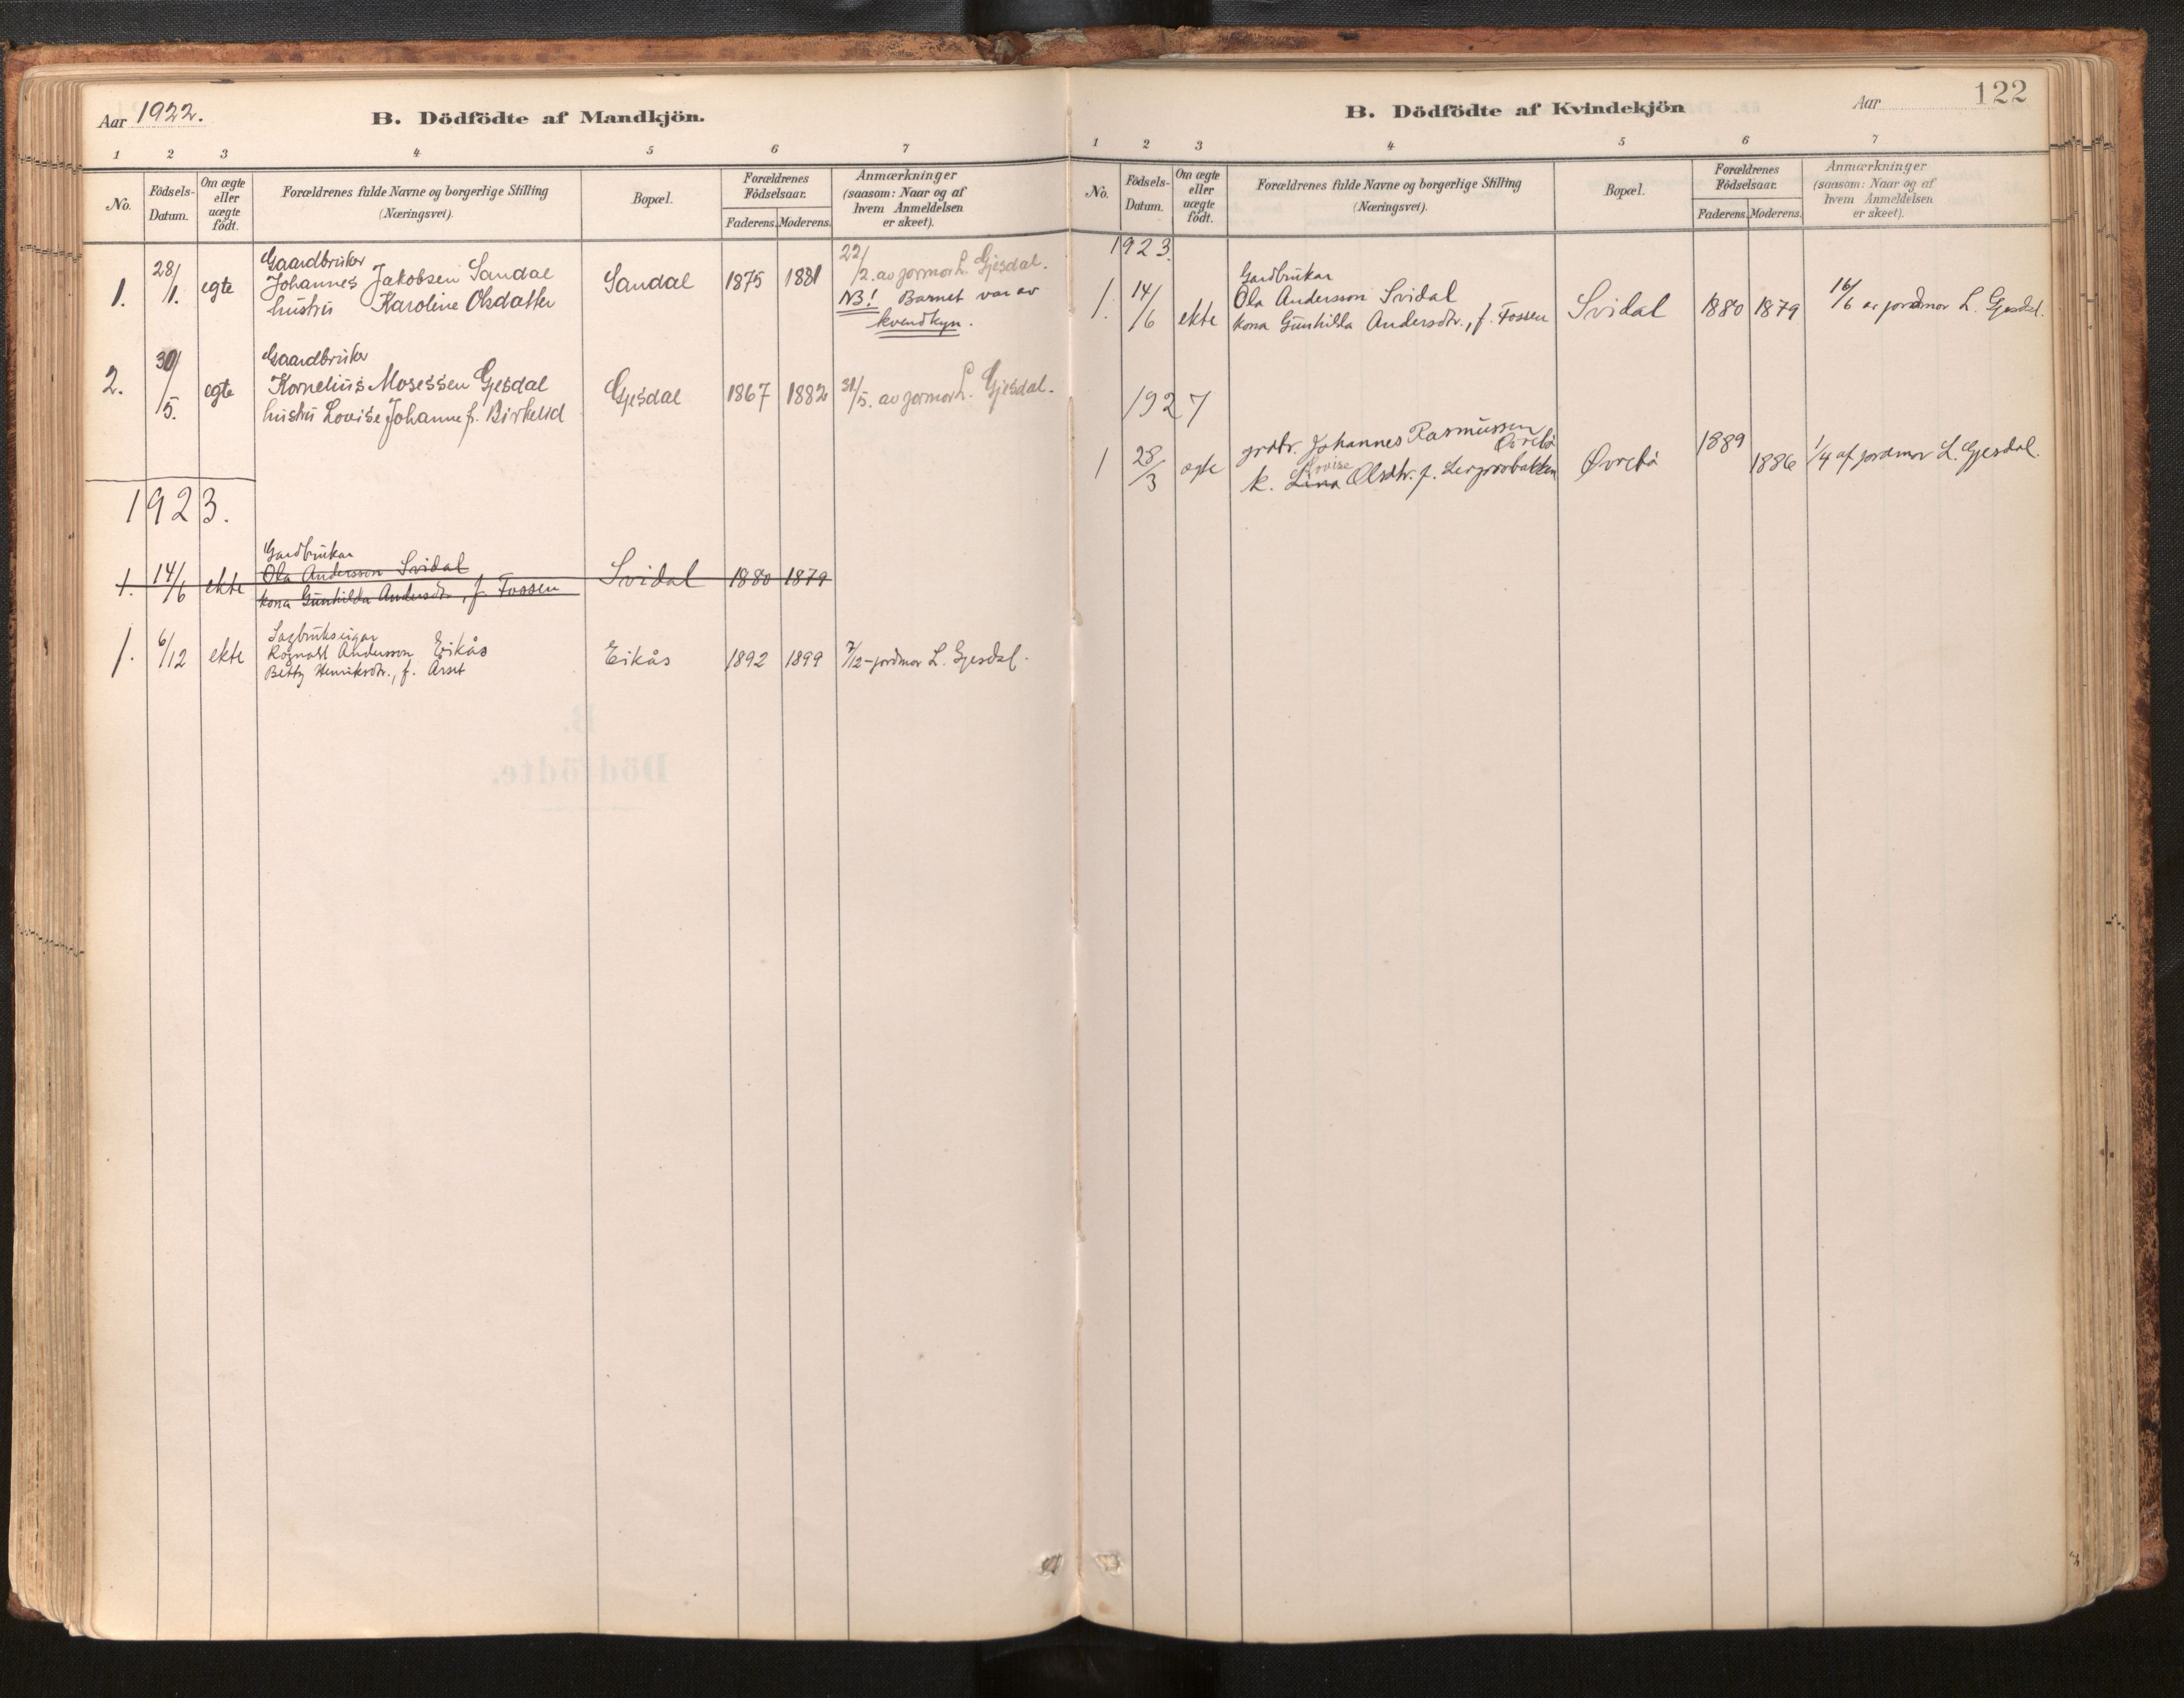 Aar 1922.
B. Dödfödte af Mandkjön.
1 2 3 4 5 6 7
No.
Födsels-
Datum.
Om ægte
eller
uægte
födt.
Forældrenes fulde Navne og borgerlige Stilling
(Næringsvei).
Bopæl.
Forældrenes
Födselsaar.
Faderens. Moderens.
Anmærkninger
(saasom: Naar og af
hvem Anmeldelsen
er skeet).
1. 28/1. egte
Gaardbruker
Johannes Jakobsen Sandal
hustru Karoline Olsdatter
Sandal 1875 1881
22/2. av jormor L. Gjesdal.
NB! Barnet var av
kvendkyn.
2. 30/5. egte
Gaardbruker
Kornelius Mosessen Gjesdal
hustru Lovise Johanne f. Birkelid
Gjesdal 1867 1882 31/5. av jormor L. Gjesdal.
1923.
1. 14/6 ekte
Gardbrukar
Ola Andersson Svidal
kona Gunhilda Andersdtr., f. Fossen
Svidal 1880 1879
1. 6/12 ekte
Sagbrukseigar
Rognald Andersson Eikås
Betty Henriksdtr., f. Årset
Eikås 1892 1899 7/12 - jordmor L. Gjesdal.
B. Dödfödte af Kvindekjön
Aar
122
1 2 3 4 5 6 7
No.
Födsels-
Datum.
Om ægte
eller
uægte
födt.
Forældrenes fulde Navne og borgerlige Stilling
(Næringsvei).
Bopæl.
Forældrenes
Födselsaar.
Faderens. Moderens.
Anmærkninger
(saasom: Naar og af
hvem Anmeldelsen
er skeet).
1923.
1. 14/6 ekte
Gardbrukar
Ola Andersson Svidal
kona Gunhilda Andersdtr., f. Fossen
Svidal 1880 1879 16/6 av jordmor L. Gjesdal.
1927
1 28/3 egte
grdbr. Johannes Rasmussen
Øvrebø
Lovise
k. Lina Olsdtr. f.
Øvrebø 1889 1886 1/4 af jordmor L. Gjesdal.